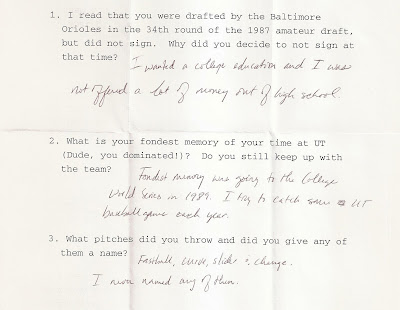 1. I read that you were drafted by the Baltimore
Orioles in the 34th round of the 1987 amateur draft,
but did not sign. Why did you decide to not sign at
that time? I wanted a college education and I was
not offered a lot of money out of high school.
2. What is your fondest memory of your time at UT
(Dude, you dominated!)? Do you still keep up with
the team? Fondest memory was going to the College
World Series in 1989. I try to catch some UT
baseball games each year.
3. What pitches did you throw and did you give any of
them a name? Fastball, curve, slider, change.
I never named any of them.